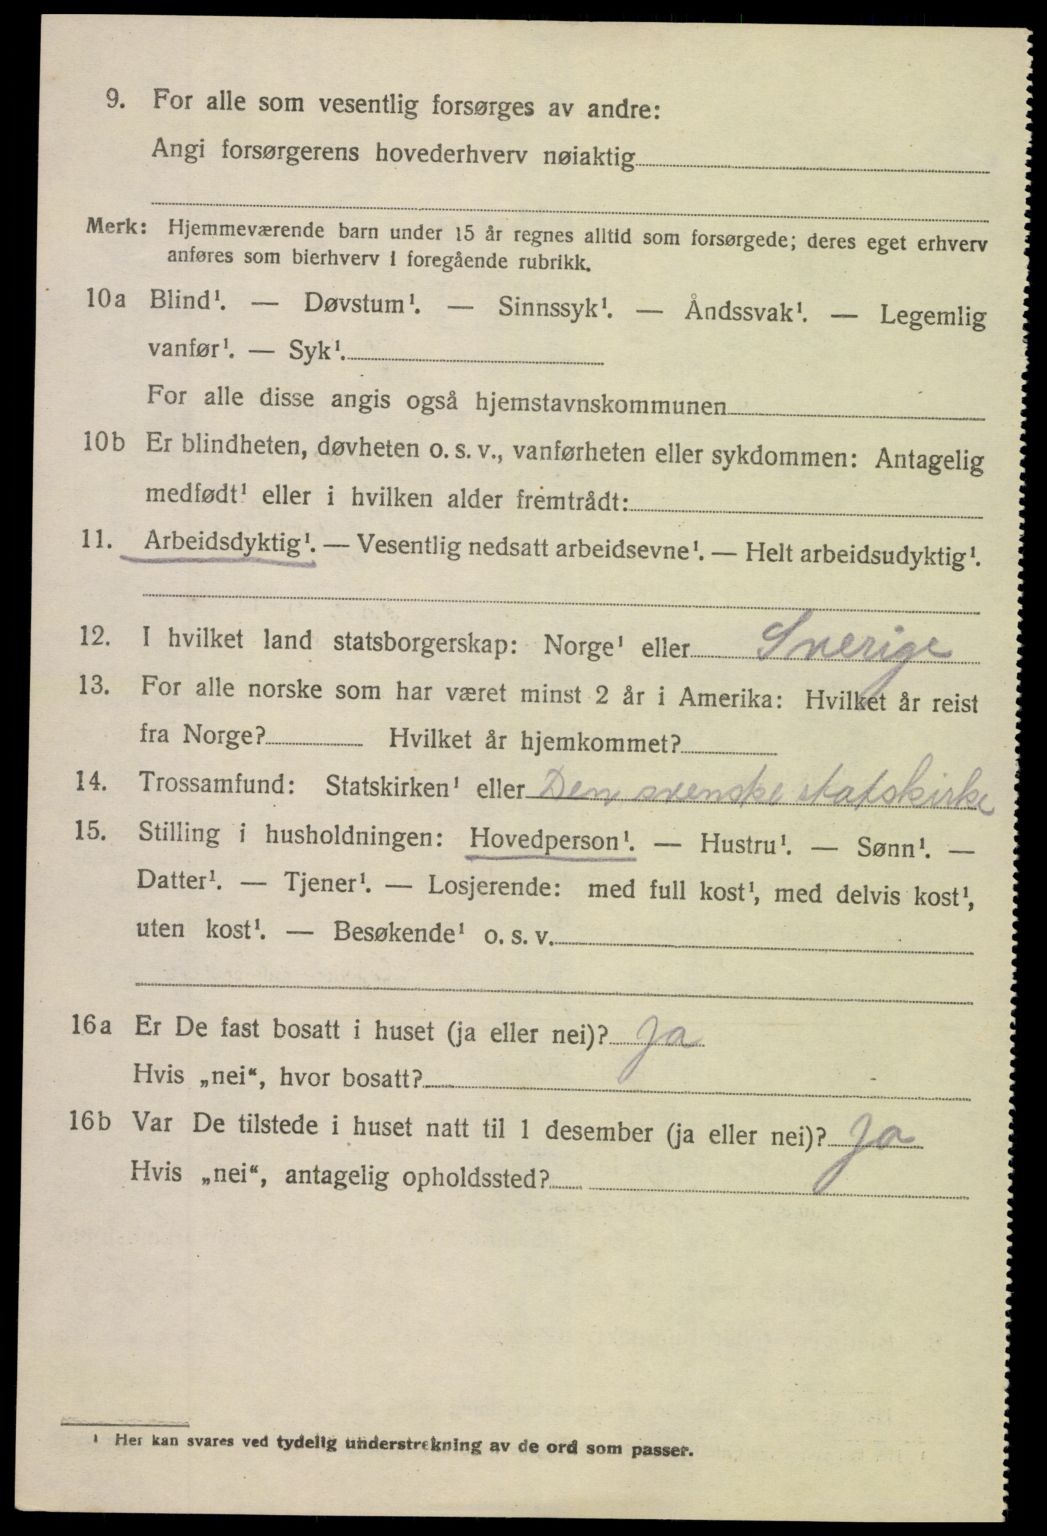 9. For alle som vesentlig forsørges av andre:
Angi forsørgerens hovederhverv nøiaktig
Merk: Hjemmeværende barn under 15 år regnes alltid som forsørgede; deres eget erhverv
anføres som bierhverv i foregående rubrikk.
10a Blind¹. — Døvstum¹. — Sinnssyk¹. — Åndssvak¹. — Legemlig
vanfør¹. — Syk¹.
For alle disse angis også hjemstavnskommunen
10b Er blindheten, døvheten o. s. v., vanførheten eller sykdommen: Antagelig
medfødt¹ eller i hvilken alder fremtrådt:
11. Arbeidsdyktig¹. — Vesentlig nedsatt arbeidsevne¹. — Helt arbeidsudyktig¹.
12. I hvilket land statsborgerskap: Norge¹ eller Sverige
13. For alle norske som har været minst 2 år i Amerika: Hvilket år reist
fra Norge? Hvilket år hjemkommet?
14. Trossamfund: Statskirken¹ eller Den svenske statskirke
15. Stilling i husholdningen: Hovedperson¹. — Hustru¹. — Sønn¹. —
Datter¹. — Tjener¹. — Losjerende: med full kost¹, med delvis kost¹,
uten kost¹. — Besøkende¹ o. s. v.
16a Er De fast bosatt i huset (ja eller nei)? Ja
Hvis „nei“, hvor bosatt?
16b Var De tilstede i huset natt til 1 desember (ja eller nei)? Ja
Hvis „nei“, antagelig opholdssted?
¹ Her kan svares ved tydelig understrekning av de ord som passer.